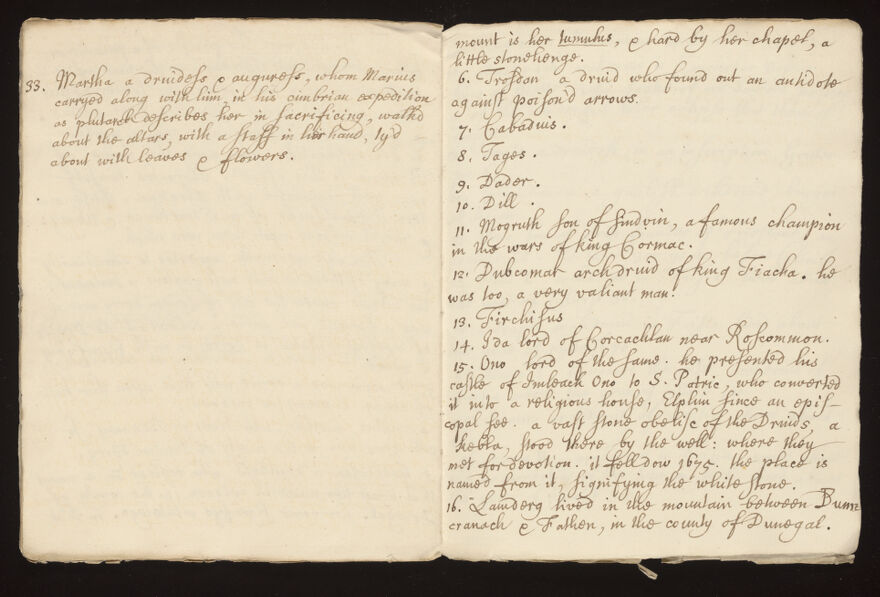 33. Martha a druidess & auguress, whom Marius
carryed along with him, in his cimbrian expedition
as plutarch describes her in sacrificing, walk'd
about the altars, with a staff in her hand, ty'd
about with leaves & flowers.
mount is her tumulus, & hard by her chapel, a
little stonehenge.
6. Trosdan a druid who found out an antidote
against poison'd arrows.
7. Cabadius.
8. Tages.
9. Dader.
10. Dill.
11. Mogruth son of Sindvin, a famous champion
in the wars of king Cormac.
12. Dubcomar archdruid of king Fiacha. he
was too, a very valiant man.
13. Firchisus
14. Ida lord of Corcachlan near Roscommon.
15. Ono lord of the same. he presented his
castle of Imleach Ono to S. Patric, who converted
it into a religious house, Elphin since an epis-
copal see. a vast stone obelisc of the Druids, a
kebla, stood there by the well: where they
met for devotion. it fell dow 1675. the place is
named from it, signifying the white stone.
16. Lamderg lived in the mountain between Bunn
cranach & Fathen, in the county of Dunegal.